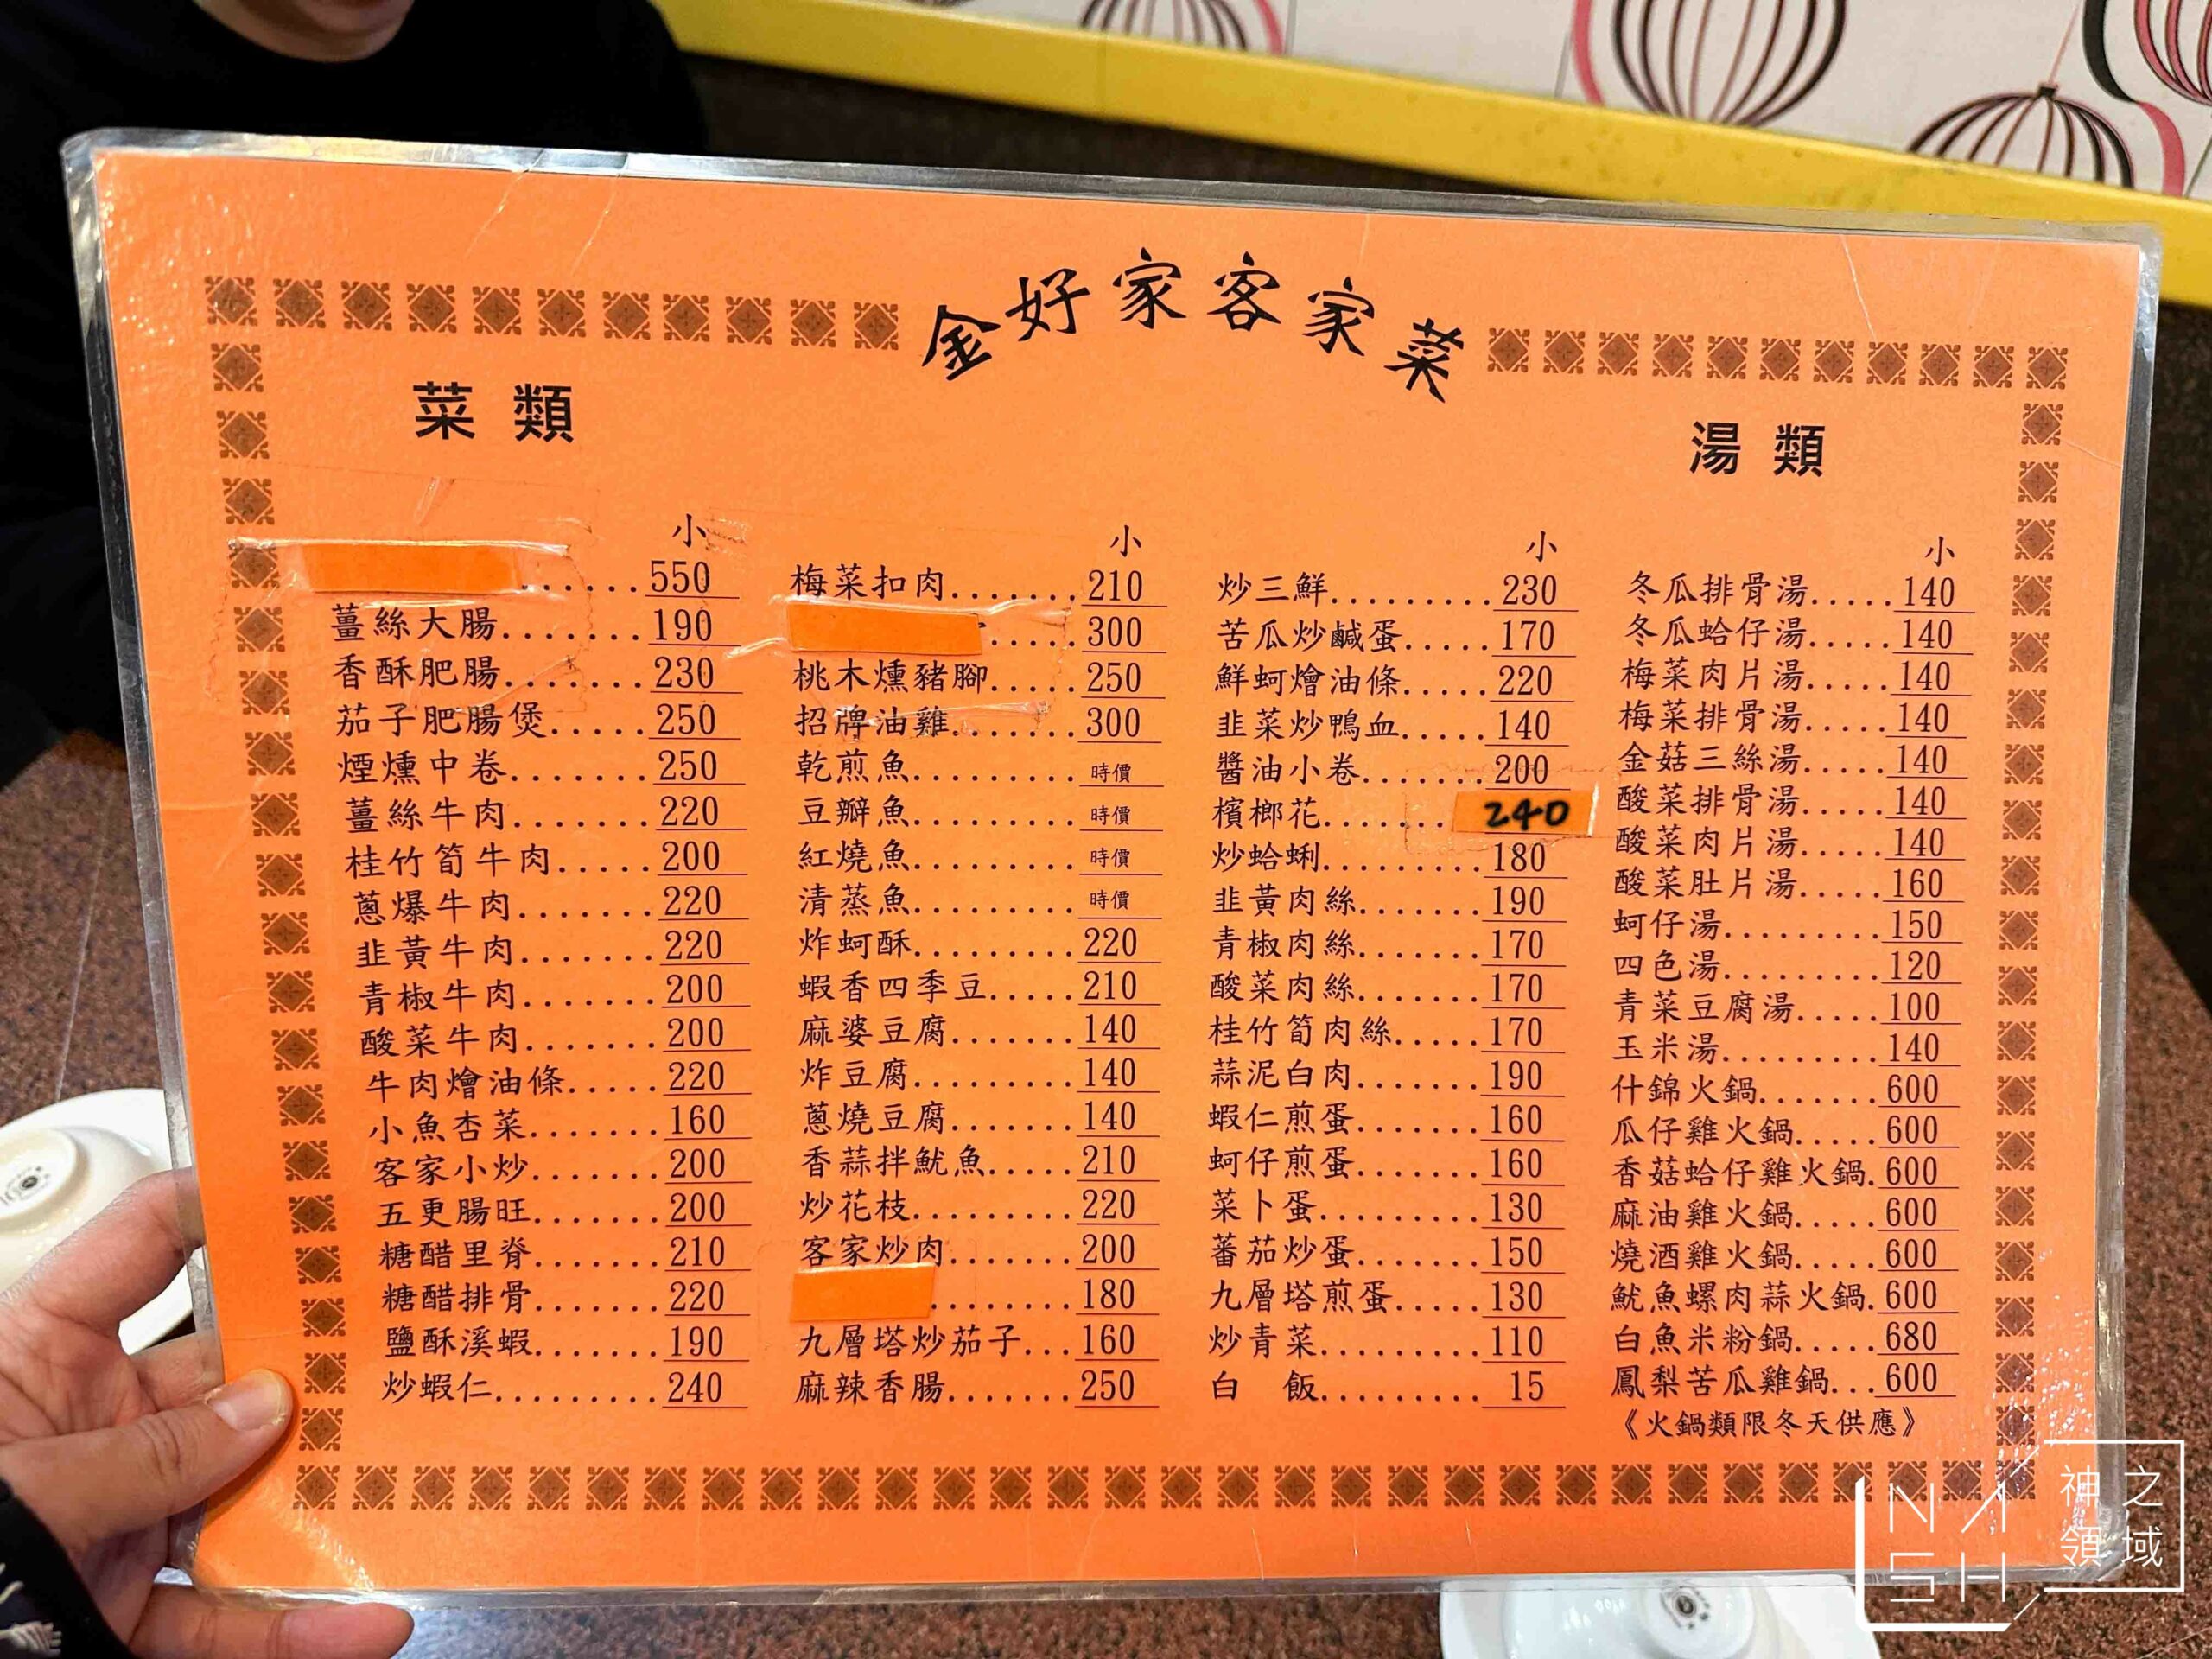 金好家客家菜
菜類
小
......550
薑絲大腸.......190
香酥肥腸.......230
茄子肥腸煲.....250
煙燻中卷.......250
薑絲牛肉.......220
桂竹筍牛肉.....200
蔥爆牛肉.......220
韭黃牛肉.......220
青椒牛肉.......200
酸菜牛肉.......200
牛肉燴油條.....220
小魚杏菜.......160
客家小炒.......200
五更腸旺.......200
糖醋里脊.......210
糖醋排骨.......220
鹽酥溪蝦.......190
炒蝦仁.........240
小
梅菜扣肉.......210
.....300
桃木燻豬腳.....250
招牌油雞.......300
乾煎魚.........時價
豆瓣魚.........時價
紅燒魚.........時價
清蒸魚.........時價
炸蚵酥.........220
蝦香四季豆.....210
麻婆豆腐.......140
炸豆腐.........140
蔥燒豆腐.......140
香蒜拌魷魚.....210
炒花枝.........220
客家炒肉.......200
........180
九層塔炒茄子...160
麻辣香腸.......250
小
炒三鮮.........230
苦瓜炒鹹蛋.....170
鮮蚵燴油條.....220
韭菜炒鴨血.....140
醬油小卷.......200
檳榔花.......240
炒蛤蜊.........180
韭黃肉絲.......190
青椒肉絲.......170
酸菜肉絲.......170
桂竹筍肉絲.....170
蒜泥白肉.......190
蝦仁煎蛋.......160
蚵仔煎蛋.......160
菜卜蛋.........130
蕃茄炒蛋.......150
九層塔煎蛋.....130
炒青菜.........110
白　飯.........15
湯類
小
冬瓜排骨湯.....140
冬瓜蛤仔湯.....140
梅菜肉片湯.....140
梅菜排骨湯.....140
金菇三絲湯.....140
酸菜排骨湯.....140
酸菜肉片湯.....140
酸菜肚片湯.....160
蚵仔湯.........150
四色湯.........120
青菜豆腐湯.....100
玉米湯.........140
什錦火鍋.......600
瓜仔雞火鍋.....600
香菇蛤仔雞火鍋.600
麻油雞火鍋.....600
燒酒雞火鍋.....600
魷魚螺肉蒜火鍋.600
白魚米粉鍋.....680
鳳梨苦瓜雞鍋...600
《火鍋類限冬天供應》
NASH
神之領域